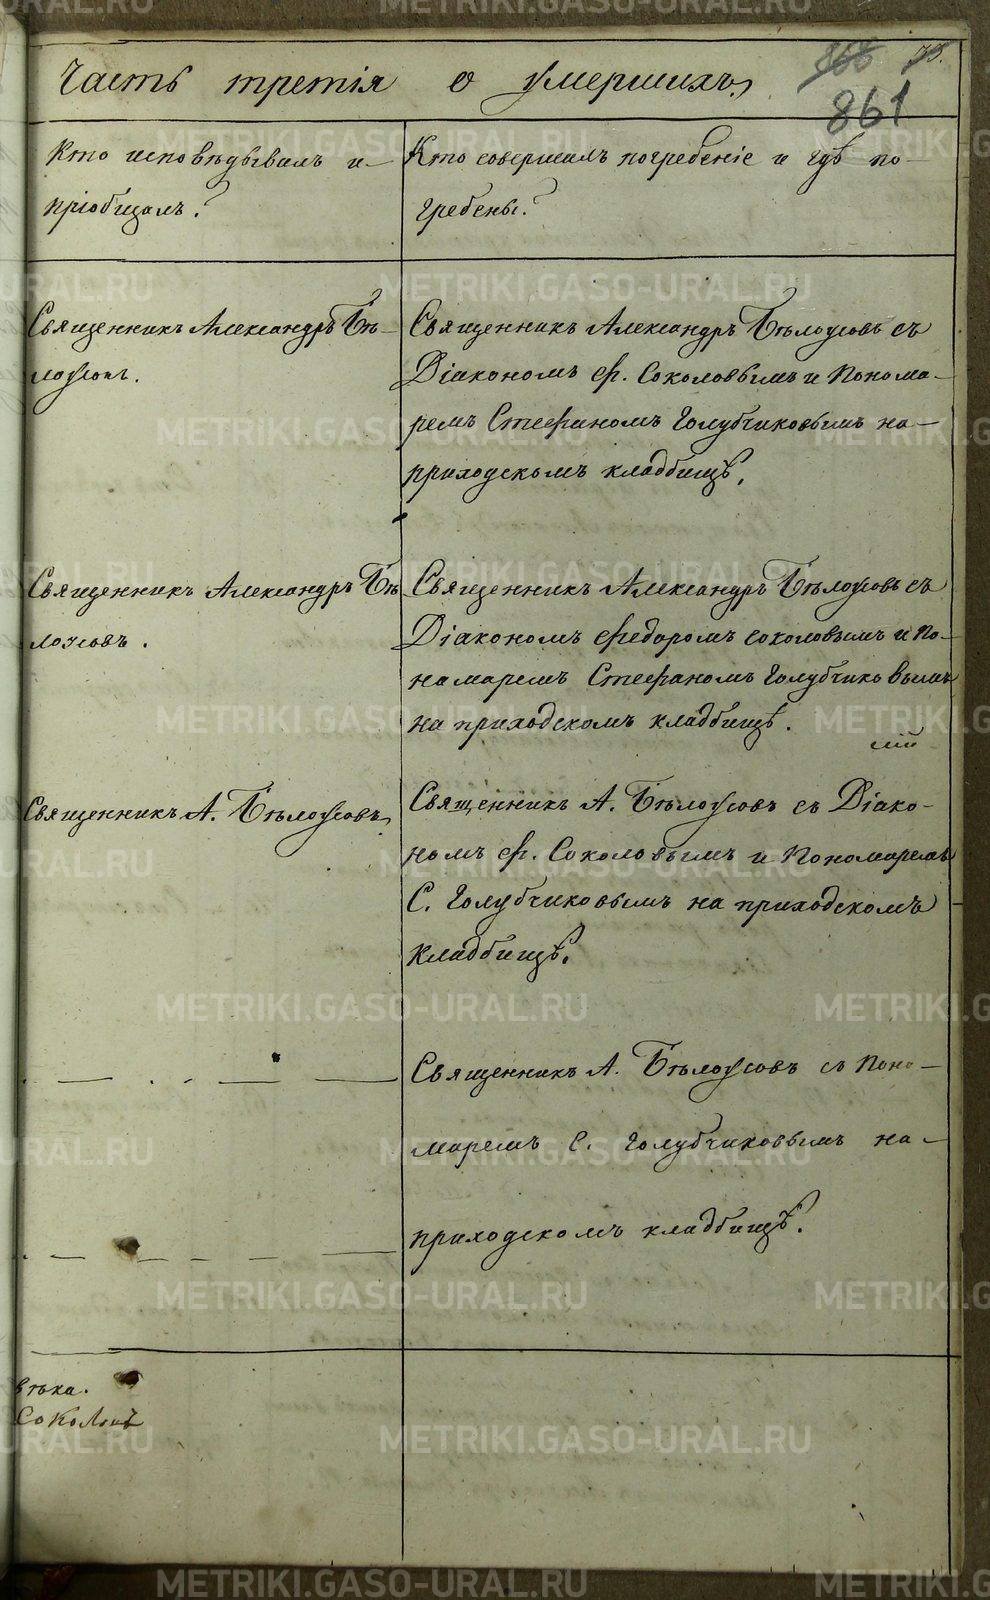 Часть третія о умершихъ.
868 75.
861
Кто исповѣдывалъ и
пріобщалъ?
Кто совершилъ погребеніе и гдѣ по-
гребены?
Священникъ Александръ Бѣ-
лоусовъ.
Священникъ Александръ Бѣлоусовъ съ
Діакономъ Ѳ. Соколовымъ и Понома-
ремъ Стефаномъ Голубчиковымъ на-
приходскомъ кладбищѣ.
Священникъ Александръ Бѣ
лоусовъ.
Священникъ Александръ Бѣлоусовъ съ
Діакономъ Ѳедоромъ Соколовымъ и По-
намаремъ Стефаномъ Голубчиковымъ
на приходскомъ кладбищѣ.
Священникъ А. Бѣлоусовъ.
Священникъ А. Бѣлоусовъ съ Діако-
номъ Ѳ. Соколовымъ и Пономаремъ
С. Голубчиковымъ на приходскомъ
кладбищѣ.
Священникъ А. Бѣлоусовъ съ Поно-
маремъ С. Голубчиковымъ на-
приходскомъ кладбищѣ.
вѣка.
Соколовъ
METRIKI.GASO-URAL.RU